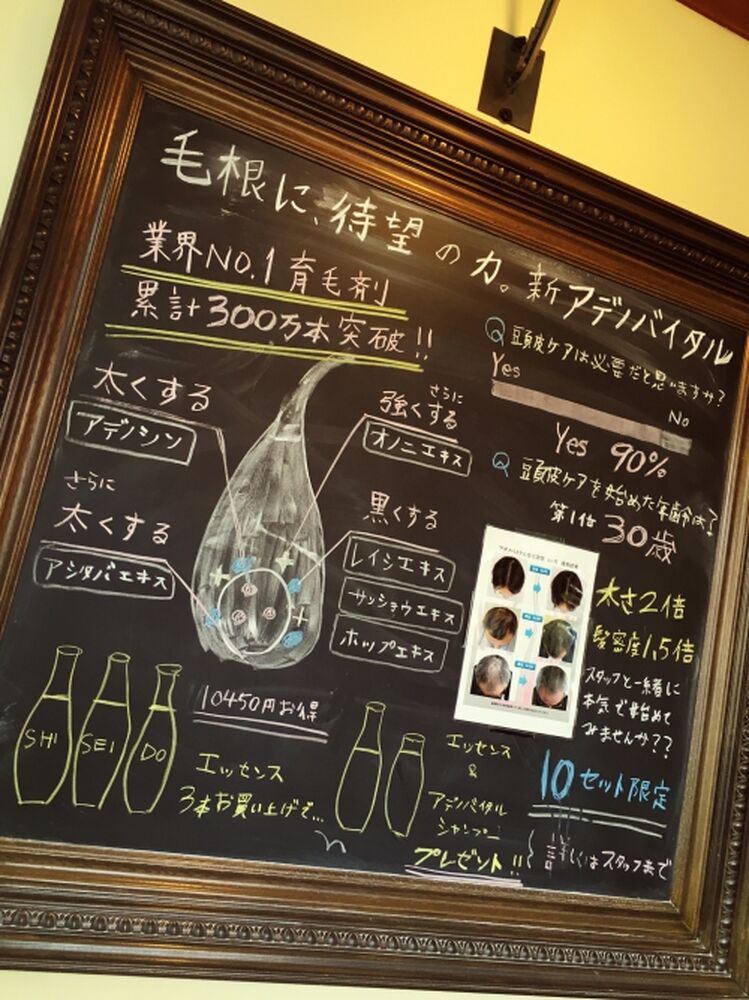 毛根に、待望の力。新アデノバイタル
業界NO.1育毛剤
累計300万本突破!!
太くする
アデノシン
さらに
強くする
オノニエキス
さらに
太くする
アシタバエキス
黒くする
レイシエキス
サンショウエキス
ホップエキス
Q 頭皮ケアは必要だと思いますか?
Yes
No
Yes 90%
Q 頭皮ケアを始めた年齢は?
第1位 30歳
太さ2倍
髪密度1,5倍
スタッフと一緒に
本気で始めて
みませんか??
10セット限定
詳しくはスタッフまで
SHI SEI DO
10450円お得
エッセンス
3本お買い上げで…
エッセンス
&
アデノバイタル
シャンプー
プレゼント!!